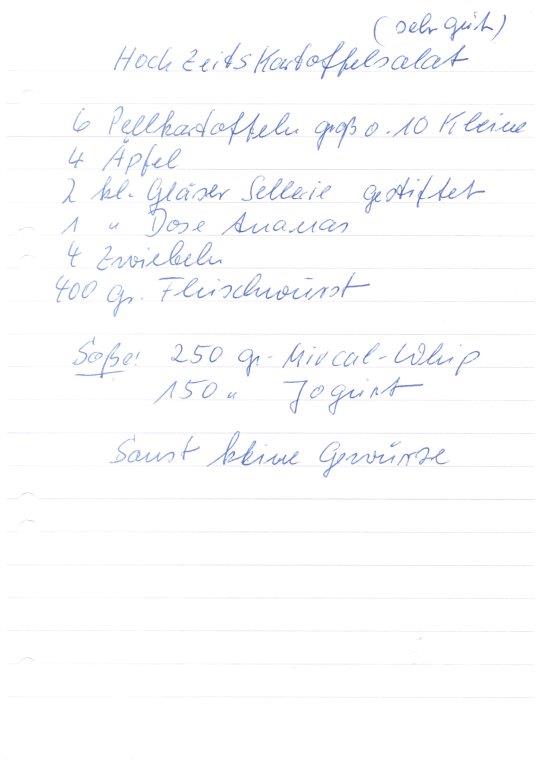 (sehr gut)
HochZeitsKartoffelsalat
6 Pellkartoffeln groß o. 10 Kleine
4 Äpfel
2 kl. Gläser Sellerie gestiftet
1 " Dose Ananas
4 Zwiebeln
400 gr. Fleischwurst
Soße: 250 gr. Mircal-Whip
150 " Jogurt
Sonst keine Gewürze